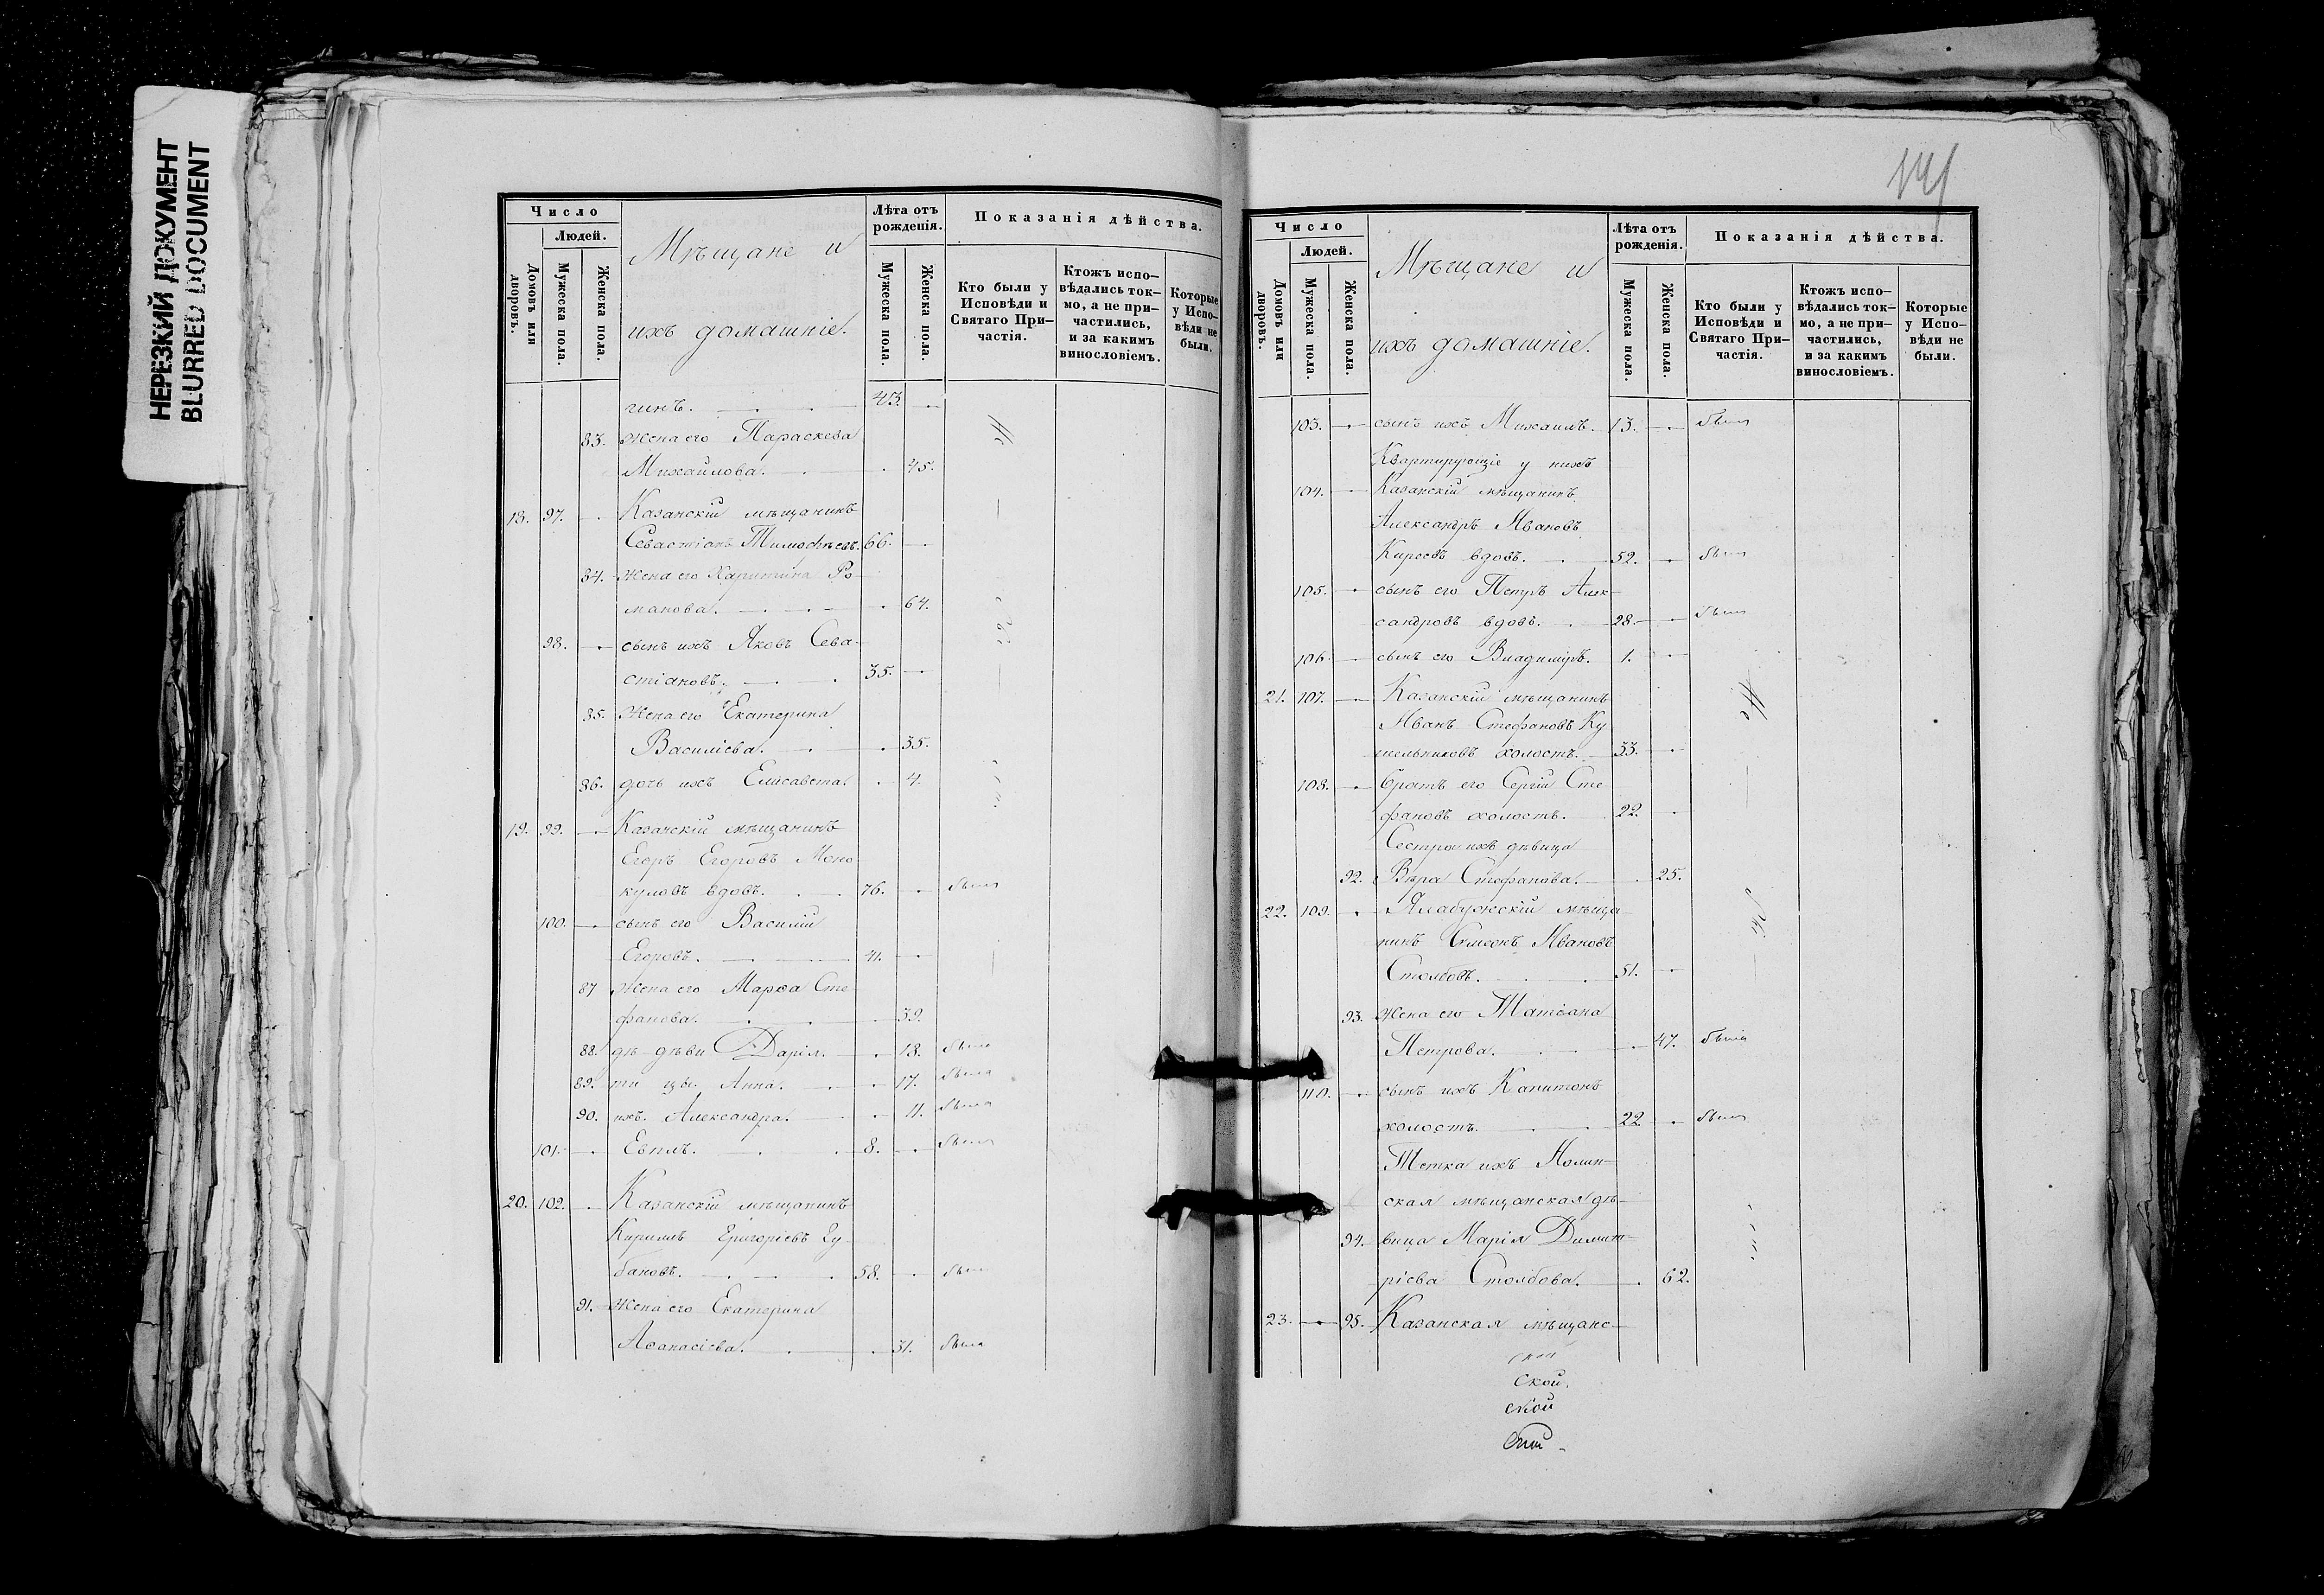 НЕРЕЗКИЙ ДОКУМЕНТ
BLURRED DOCUMENT
Число
Людей.
Домовъ или дворовъ.
Мужеска пола.
Женска пола.
Мѣщане и
ихъ домашніе.
Лѣта отъ рожденія.
Мужеска пола.
Женска пола.
Показанія дѣйства.
Кто были у Исповѣди и Святаго При–частія.
Ктожъ испо–вѣдались ток–мо, а не при–частились, и за какимъ винословіемъ.
Которые у Испо–вѣди не были.
гинъ. 43. —
83. Жена его Параскева
Михайлова. 45.
18. 97. — Казанскій мѣщанинъ
Севастіанъ Тимоѳѣевъ. 66. —
84. Жена его Харитина Ро–
манова. 64.
98. — сынъ ихъ Яковъ Сева–
стіановъ. 35. —
85. Жена его Екатерина
Василіева. 35.
86. дочь ихъ Елисавета. 4.
19. 99. — Казанскій мѣщанинъ
Егоръ Егоровъ Моно
куловъ вдовъ. 76. — былъ
100. — сынъ его Василій
Егоровъ. 41. —
87 Жена его Марѳа Сте
фанова. 39.
88. дѣ– дѣви Дарія. 18. была
89. ти цы. Анна. 17. была
90. ихъ. Александра. 11. была
101. — Евплъ. 8. — былъ
20. 102. — Казанскій мѣщанинъ
Кириллъ Григоріевъ Гу–
бановъ. 58. — былъ
91. Жена его Екатерина
Аѳанасіева. 51. была
141
Число
Людей.
Домовъ или дворовъ.
Мужеска пола.
Женска пола.
Мѣщане и
ихъ домашніе.
Лѣта отъ рожденія.
Мужеска пола.
Женска пола.
Показанія дѣйства.
Кто были у Исповѣди и Святаго При–частія.
Ктожъ испо–вѣдались ток–мо, а не при–частились, и за какимъ винословіемъ.
Которые у Испо–вѣди не были.
103. — сынъ ихъ Михаилъ. 13. — былъ
Квартирующіе у нихъ
104. — Казанскій мѣщанинъ
Александръ Ивановъ
Киреевъ вдовъ. 52. — былъ
105. — сынъ его Петръ Алек–
сандровъ вдовъ. 28. — былъ
106. — сынъ его Владиміръ. 1. —
21. 107. — Казанскій мѣщанинъ
Иванъ Стефановъ Ку
шельниковъ холостъ. 33. —
108. — братъ его Сергій Сте
фановъ холостъ. 22. —
Сестра ихъ дѣвица
92. Вѣра Стефанова. 25.
22. 109. — Ялабужскій мѣща–
нинъ Симеонъ Ивановъ
Столбовъ. 51. —
93. Жена его Татіана
Петрова. 47. была
110. — сынъ ихъ Капитонъ
холостъ. 22 — былъ
Тетка ихъ Нолин–
ская мѣщанская дѣ–
94. вица Марія Димит–
ріева Столбова. 62.
23. — 95. Казанская мѣщанс–
ской.
ской